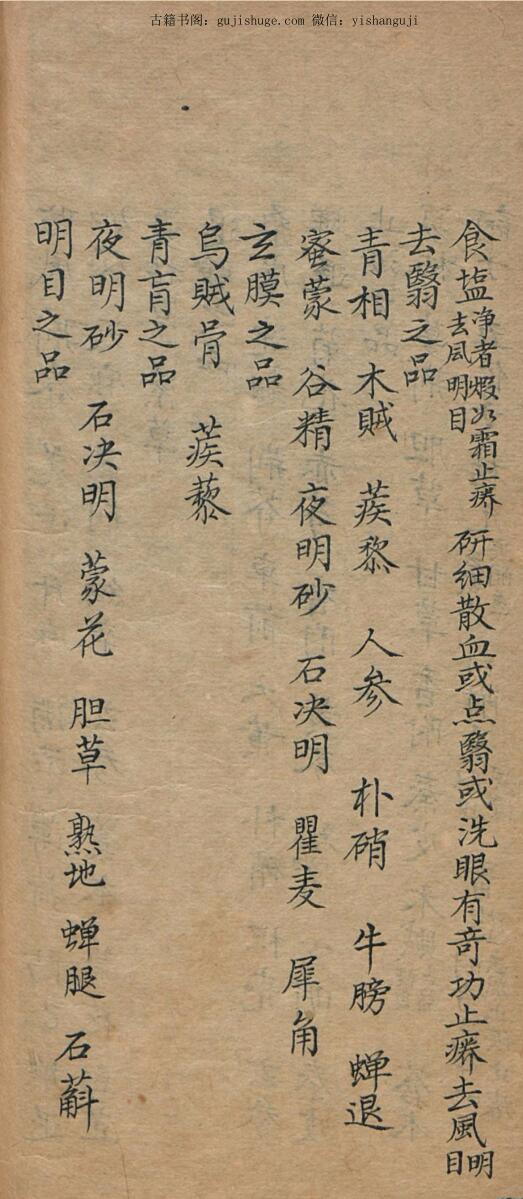 古籍书阁：gujishuge.com 微信：yishanguji
食塩净者煅如霜止痹去風明目 研细散血或点翳或洗眼有奇功止痹去風明目
去翳之品
青相 木贼 蒺藜 人参 朴硝 牛膀 蝉退
蜜蒙 谷精 夜明砂 石决明 瞿麦 犀角
玄膜之品
烏贼骨 蒺藜
青盲之品
夜明砂 石决明 蒙花 胆草 熟地 蝉腿 石斛
明目之品